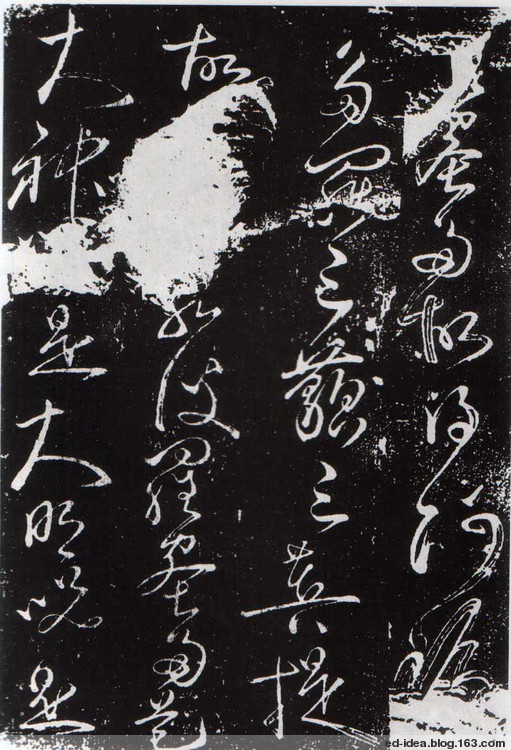 蜜多故得阿耨
多羅三藐三菩提
故 若波羅蜜多是
大神 是大明咒是
ed-idea.blog.163.com